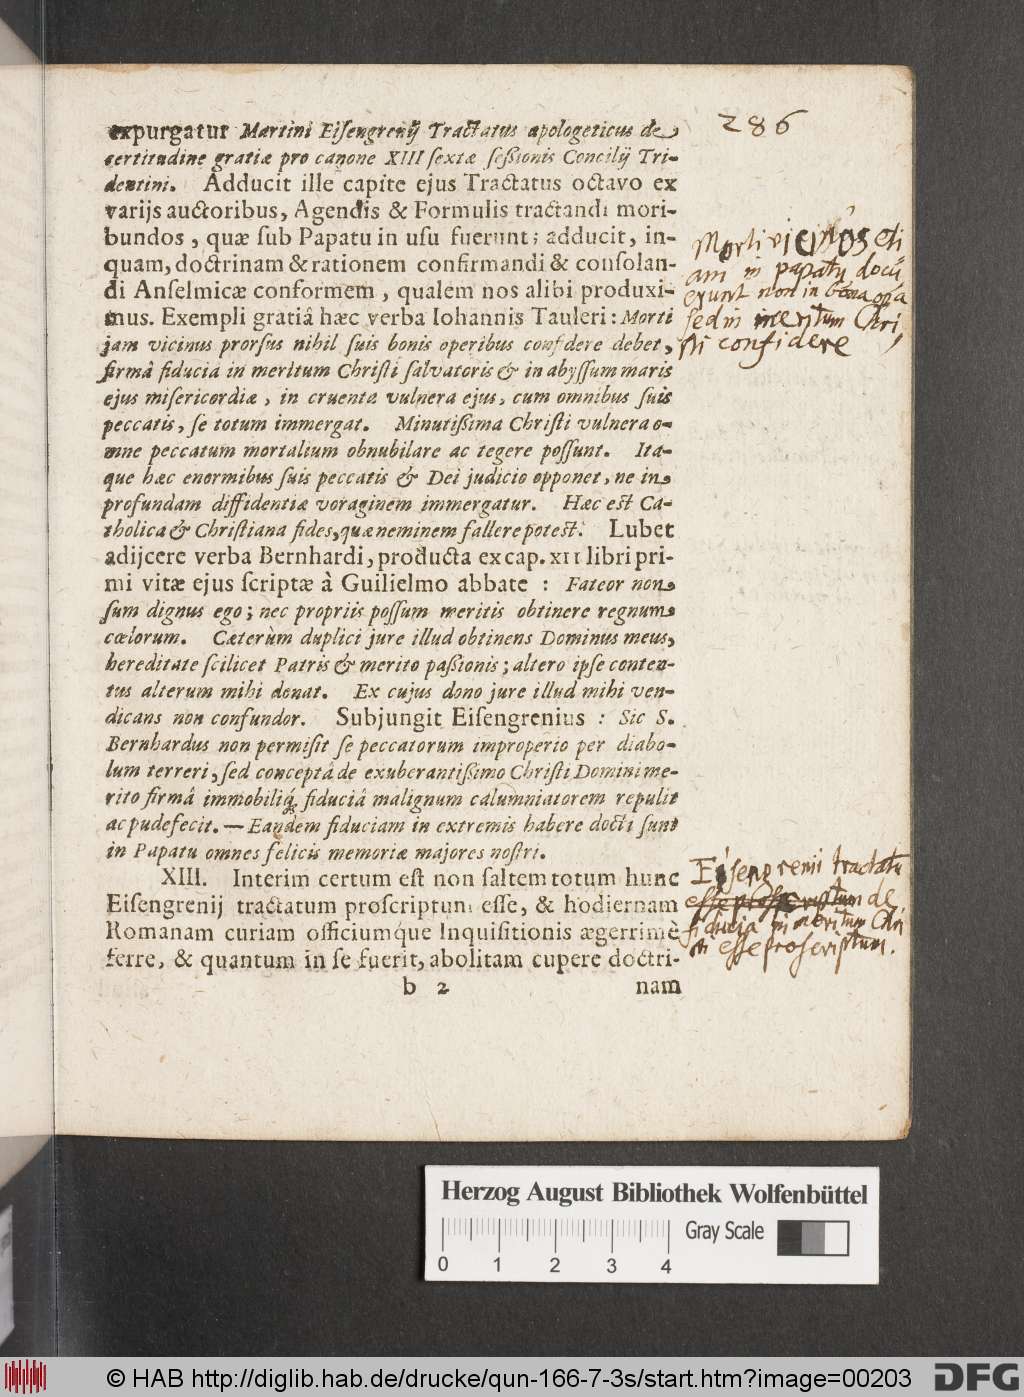 286
expurgatur Martini Eiſengrenij Tractatus apologeticus de
certitudine gratiæ pro canone XIII ſextæ ſeßionis Concilij Tri-
dentini. Adducit ille capite ejus Tractatus octavo ex
varijs auctoribus, Agendis & Formulis tractandi mori-
bundos, quæ ſub Papatu in uſu fuerunt; adducit, in-
quam, doctrinam & rationem confirmandi & conſolan-
di Anſelmicæ conformem, qualem nos alibi produxi-
mus. Exempli gratiâ hæc verba Iohannis Tauleri: Morti
jam vicinus prorſus nihil ſuis bonis operibus confidere debet,
firmâ fiduciâ in meritum Chriſti ſalvatoris & in abyſſum maris
ejus miſericordiæ, in cruenta vulnera ejus, cum omnibus ſuis
peccatis, ſe totum immergat. Minutißima Chriſti vulnera o-
mne peccatum mortalium obnubilare ac tegere poſſunt. Ita-
que hæc enormibus ſuis peccatis & Dei judicio opponet, ne in
profundam diffidentiæ voraginem immergatur. Hæc eſt Ca-
tholica & Chriſtiana fides, quæ neminem fallere poteſt. Lubet
adijcere verba Bernhardi, producta ex cap. XII libri pri-
mi vitæ ejus ſcriptæ à Guilielmo abbate : Fateor non
ſum dignus ego; nec propriis poſſum meritis obtinere regnum
cœlorum. Cæterùm duplici jure illud obtinens Dominus meus,
hereditate ſcilicet Patris & merito paßionis; altero ipſe conten-
tus alterum mihi donat. Ex cujus dono jure illud mihi ven-
dicans non confundor. Subjungit Eiſengrenius : Sic S.
Bernhardus non permiſit ſe peccatorum improperio per diabo-
lum terreri, ſed conceptâ de exuberantißimo Chriſti Domini me-
rito firmâ immobiliq́; fiduciâ malignum calumniatorem repulit
ac pudefecit. — Eandem fiduciam in extremis habere docti ſunt
in Papatu omnes felicis memoriæ majores noſtri.
XIII. Interim certum eſt non ſaltem totum hunc
Eiſengrenij tractatum proſcriptum eſſe, & hodiernam
Romanam curiam officiumque Inquiſitionis ægerrimè
ferre, & quantum in ſe fuerit, abolitam cupere doctri-
b 2 nam
Morti vicinos eti
am in papatu docu
erunt non in bona opa
sed in meritum Chri
sti confidere
Eisengrenii tractatu
de
fiducia in meritum Chri
sti esse proscriptum.
Herzog August Bibliothek Wolfenbüttel
Gray Scale
0 1 2 3 4
© HAB http://diglib.hab.de/drucke/qun-166-7-3s/start.htm?image=00203
DFG